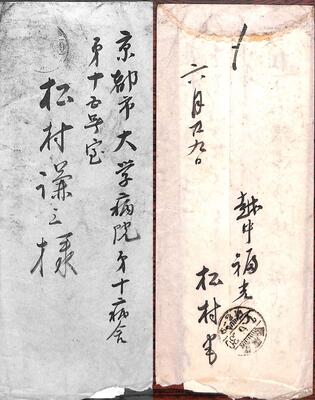 京都市大学病院第十病舎
第十五号室
松村謙三様
六月廿九日
越中福光
松村